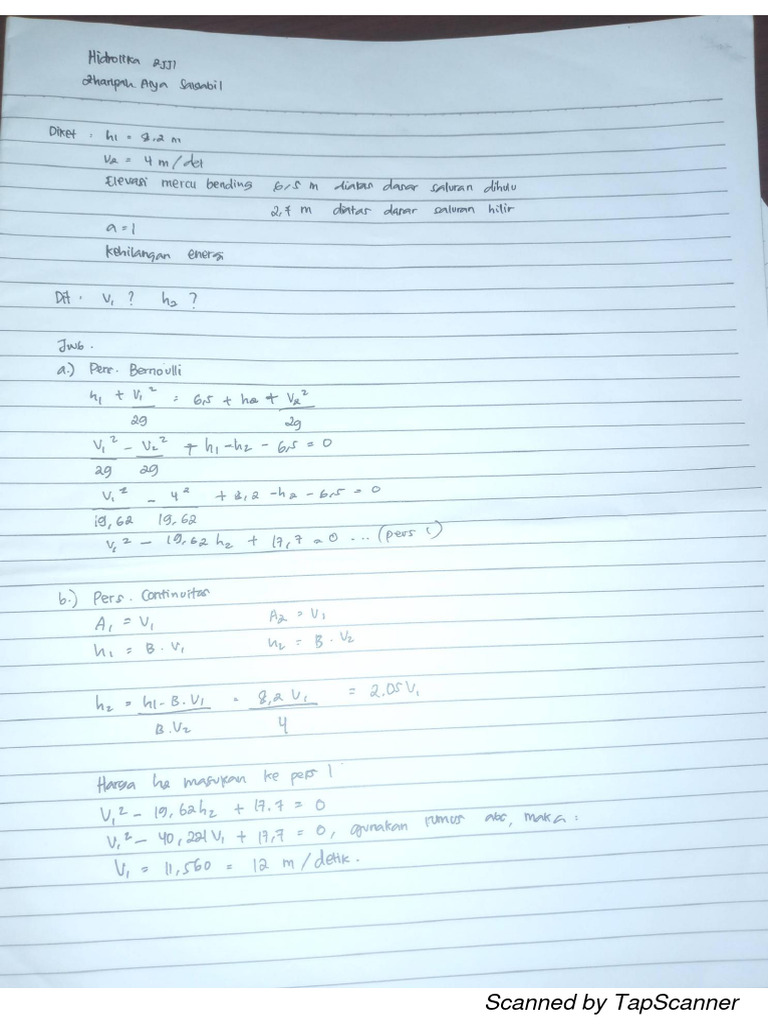 Hidrolika 2JJ1
Zharipah Arya Salsabil
Diket : h1 = 8,2 m
V2 = 4 m/det
Elevasi mercu bending 6,5 m diatas dasar saluran dihulu
2,7 m diatas dasar saluran hilir
a = 1
Kehilangan energi
Dit . V1 ? h2 ?
Jwb .
a.) Pers. Bernoulli
h1 + V1²/2g = 6,5 + h2 + V2²/2g
V1²/2g - V2²/2g + h1 - h2 - 6,5 = 0
V1²/19,62 - 4²/19.62 + 8,2 - h2 - 6,5 = 0
V1² - 19,62 h2 + 17,7 = 0 ... (pers 1)
b.) Pers. Continuitas
A1 = V1 A2 = V1
h1 = B . V1 h2 = B . V2
h2 = h1 - B. V1/B. V2 = 8,2 V1/4 = 2.05 V1
Harga h2 masukan ke pers 1
V1² - 19,62h2 + 17.7 = 0
V1² - 40,221 V1 + 17,7 = 0, gunakan rumus abc, maka :
V1 = 11,560 = 12 m/detik.
Scanned by TapScanner